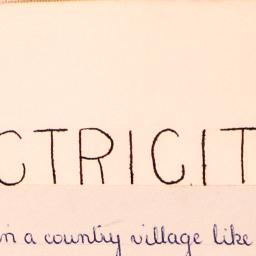 CTRICIT
in a country village like